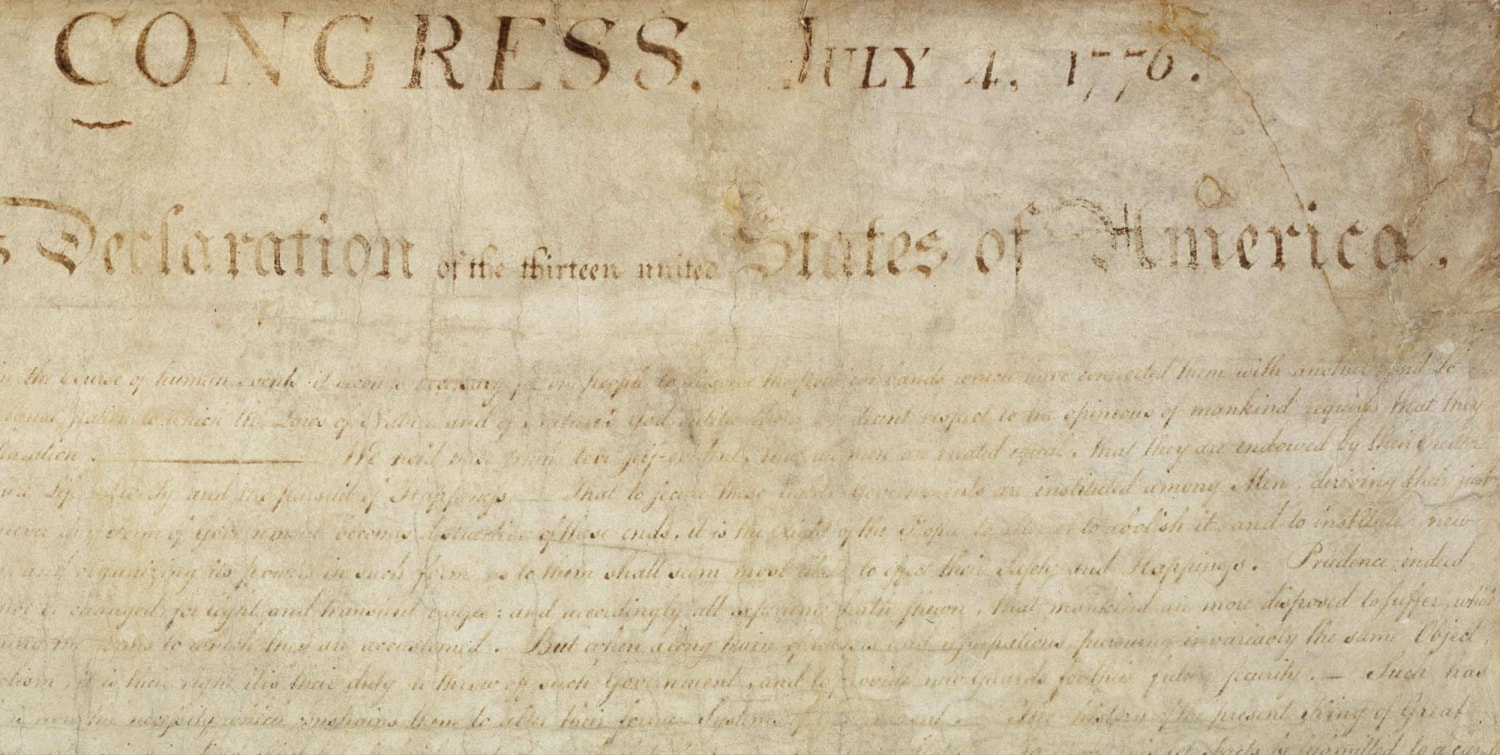 CONGRESS. JULY 4, 1776.
Declaration of the thirteen united States of America.
the Course of human events it becomes necessary for one people to dissolve the political bands which have connected them with another, and to
equal station to which the Laws of Nature and of Nature's God entitle them, a decent respect to the opinions of mankind requires that they
We hold these truths to be self-evident, that all men are created equal, that they are endowed by their Creator
are Life, Liberty and the pursuit of Happiness. — That to secure these rights, Governments are instituted among Men, deriving their just
any Form of Government becomes destructive of these ends, it is the Right of the People to alter or to abolish it, and to institute new
and organizing its powers in such form, as to them shall seem most likely to effect their Safety and Happiness. Prudence, indeed
not be changed for light and transient causes; and accordingly all experience hath shewn, that mankind are more disposed to suffer, while
forms to which they are accustomed. But when a long train of abuses and usurpations, pursuing invariably the same Object
it is their right, it is their duty, to throw off such Government, and to provide new Guards for their future security. — Such has
is now the necessity which constrains them to alter their former Systems of Government. The history of the present King of Great